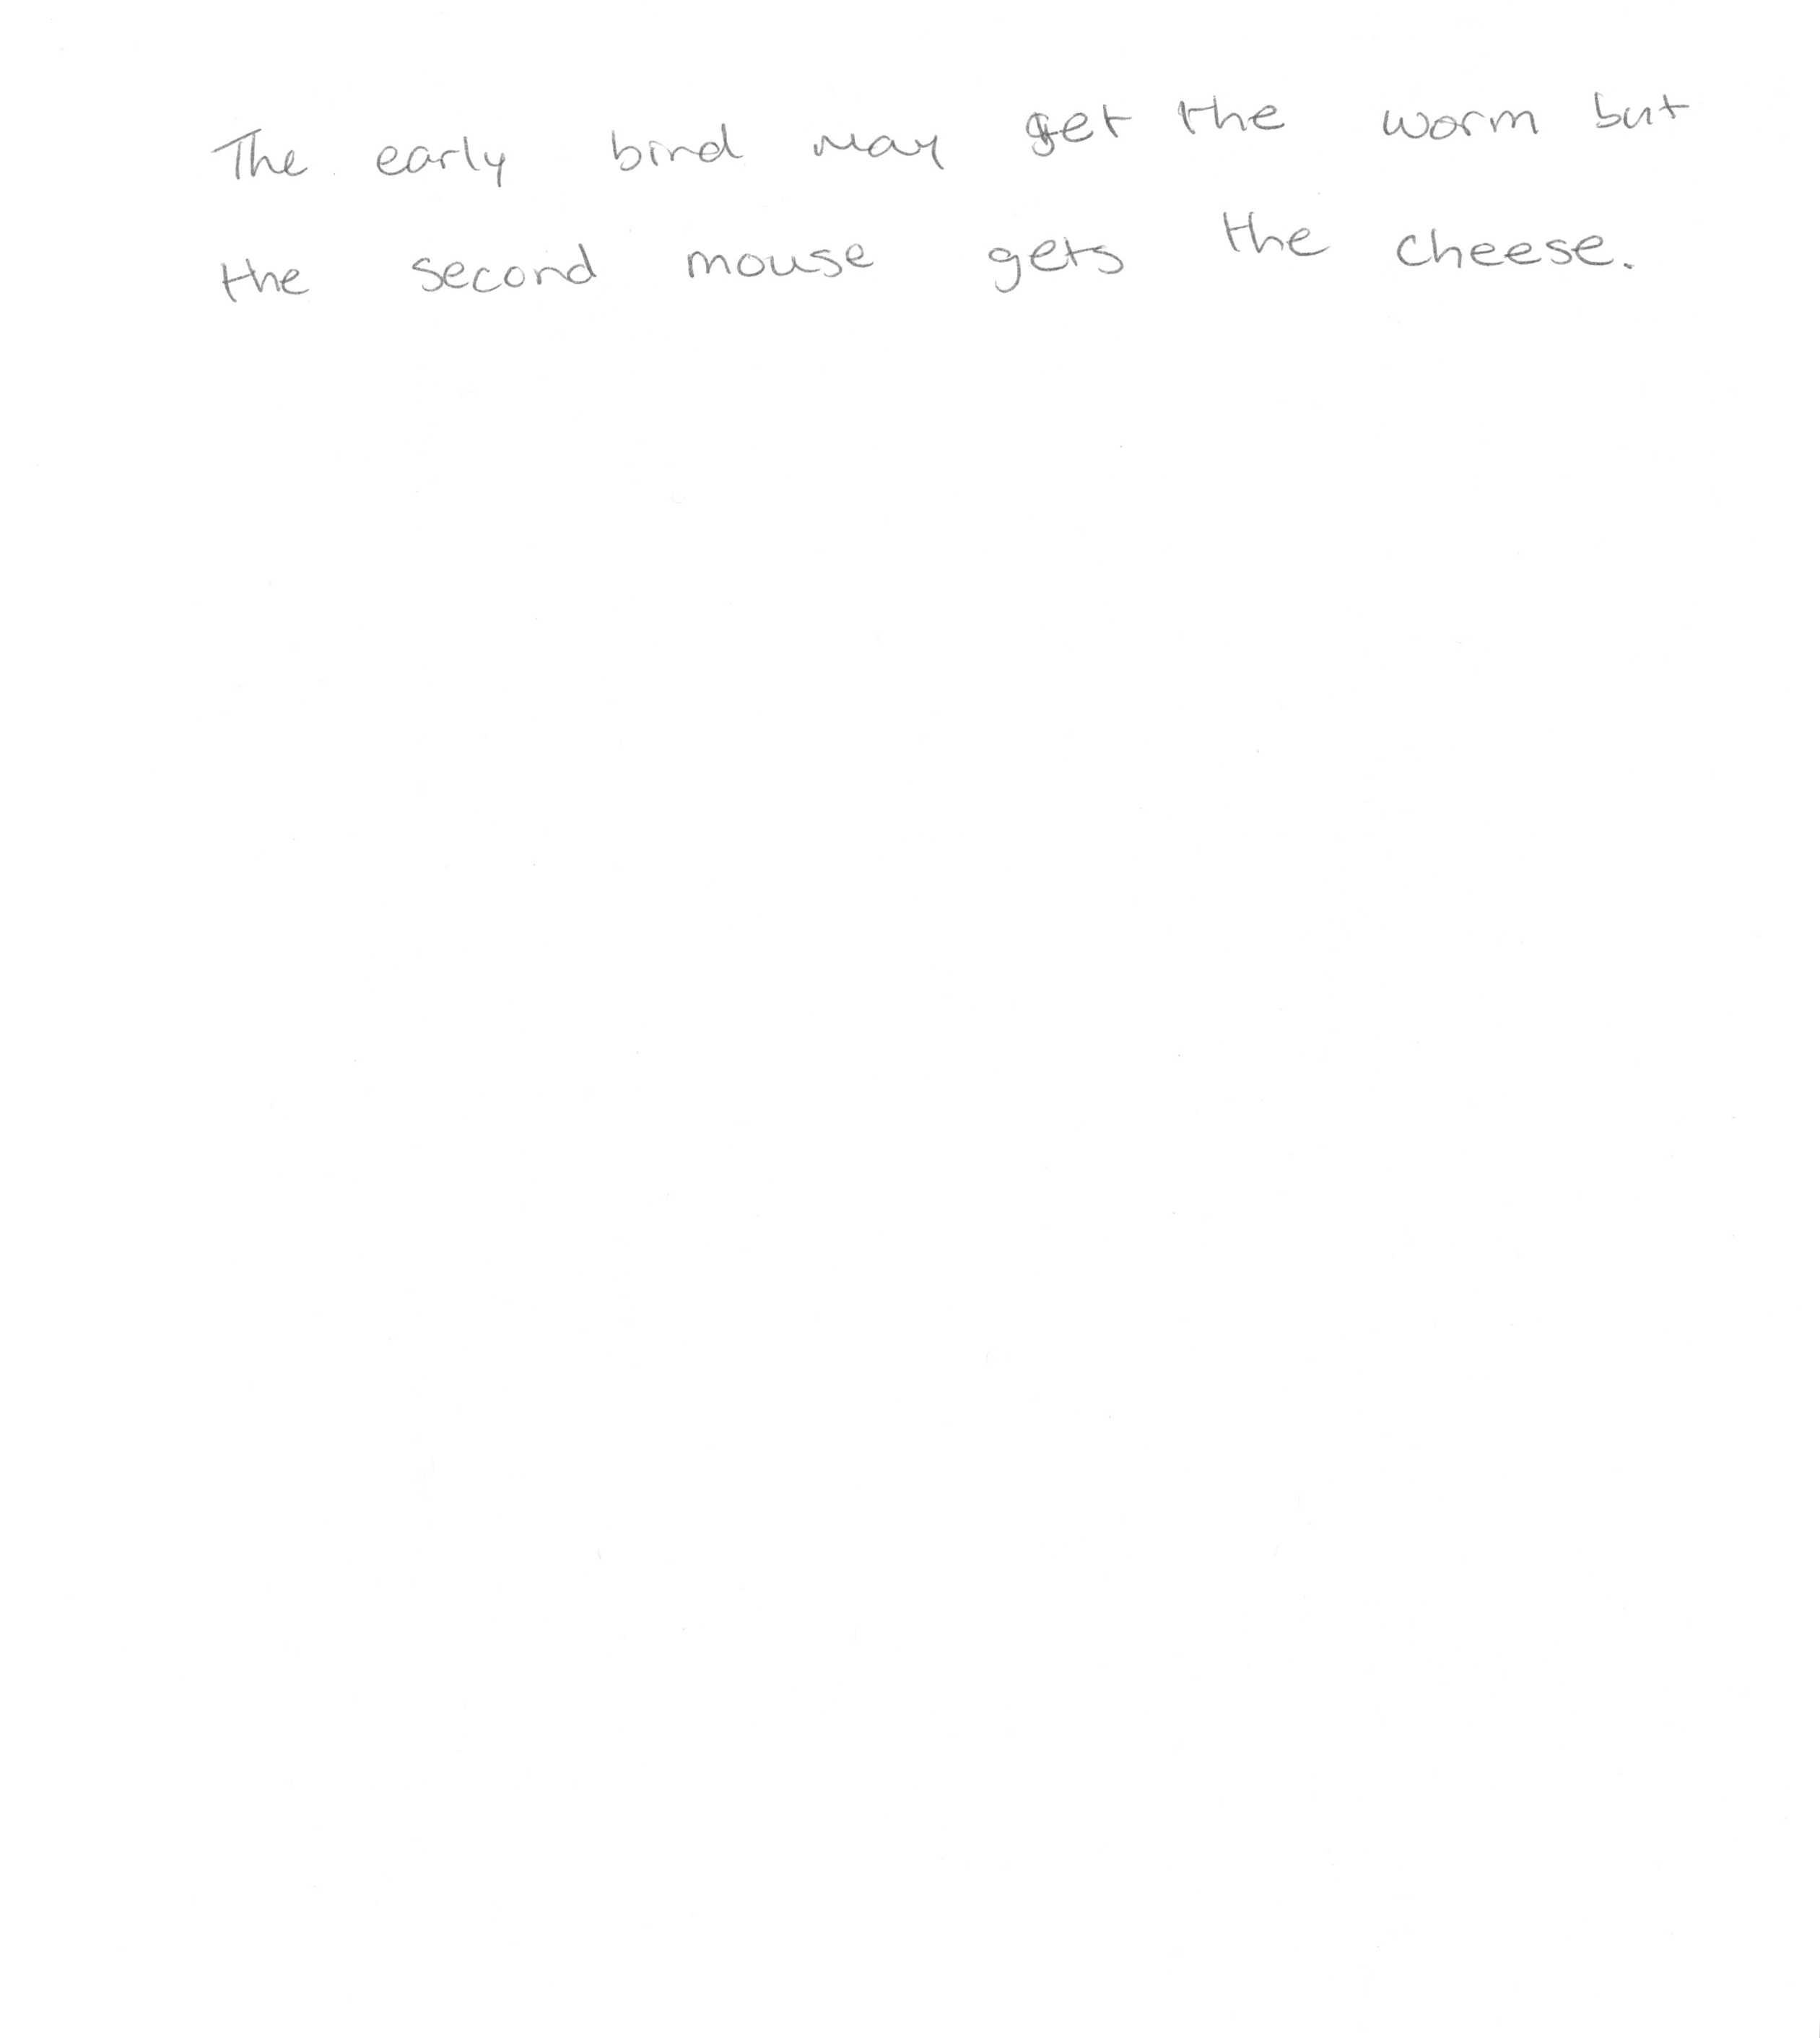 The early bird may get the worm but
the second mouse gets the cheese.